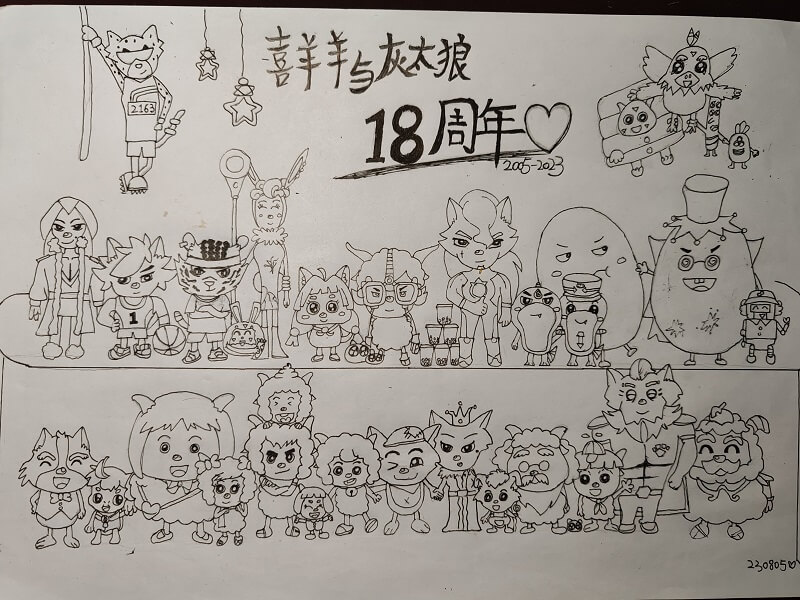 喜羊羊与灰太狼
18周年♡
2005-2023
2163
1
230805♡